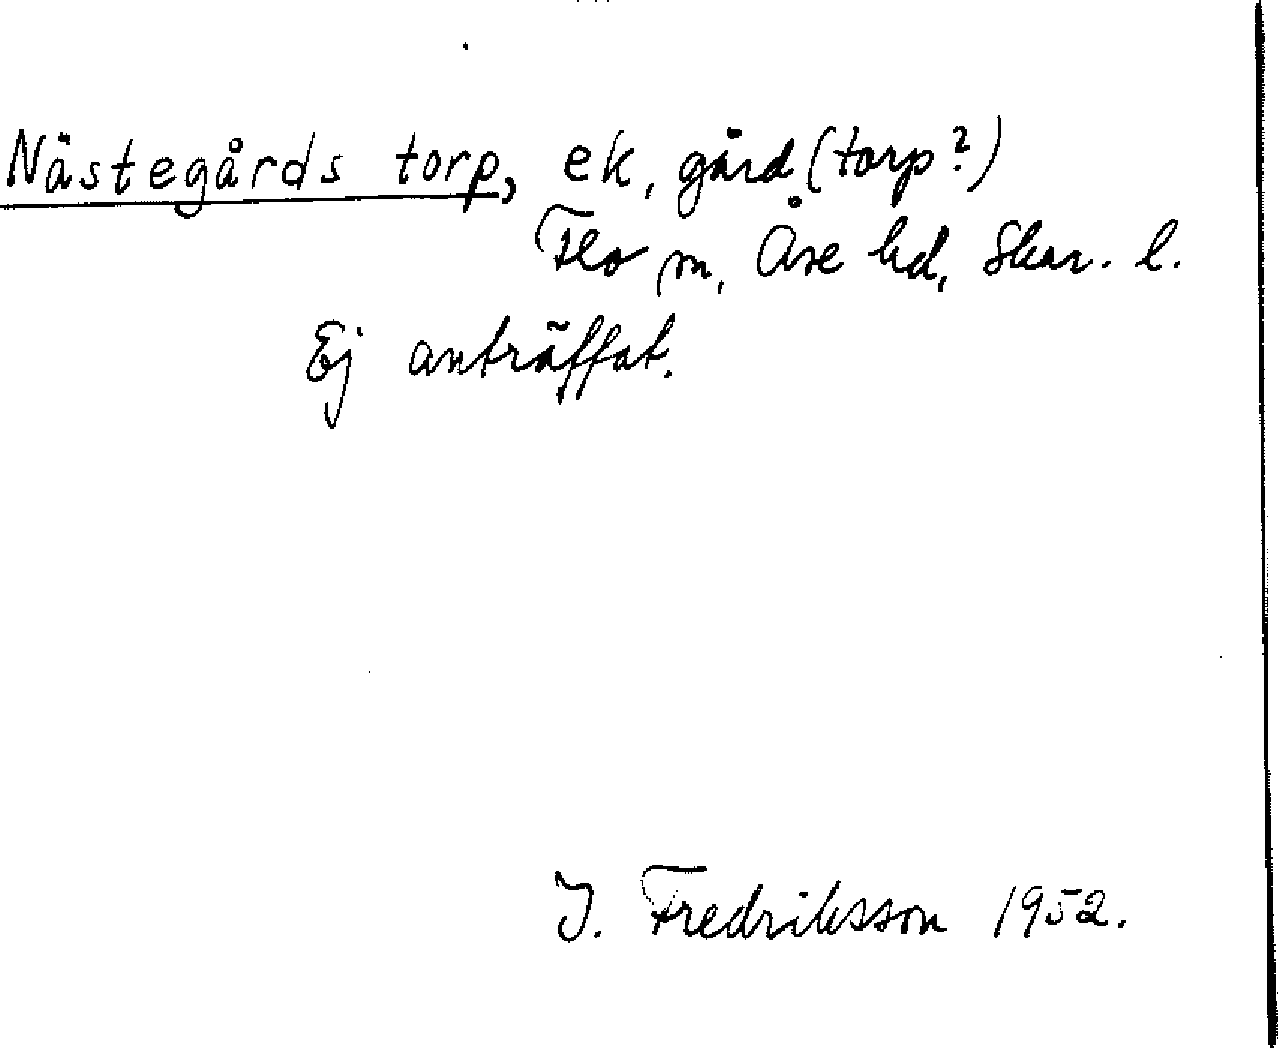 Nästegårds torp, ek, gård (torp?)
Flo sn, Åse hd, Skar. l.
Ej anträffat.
I. Fredriksson 1952.